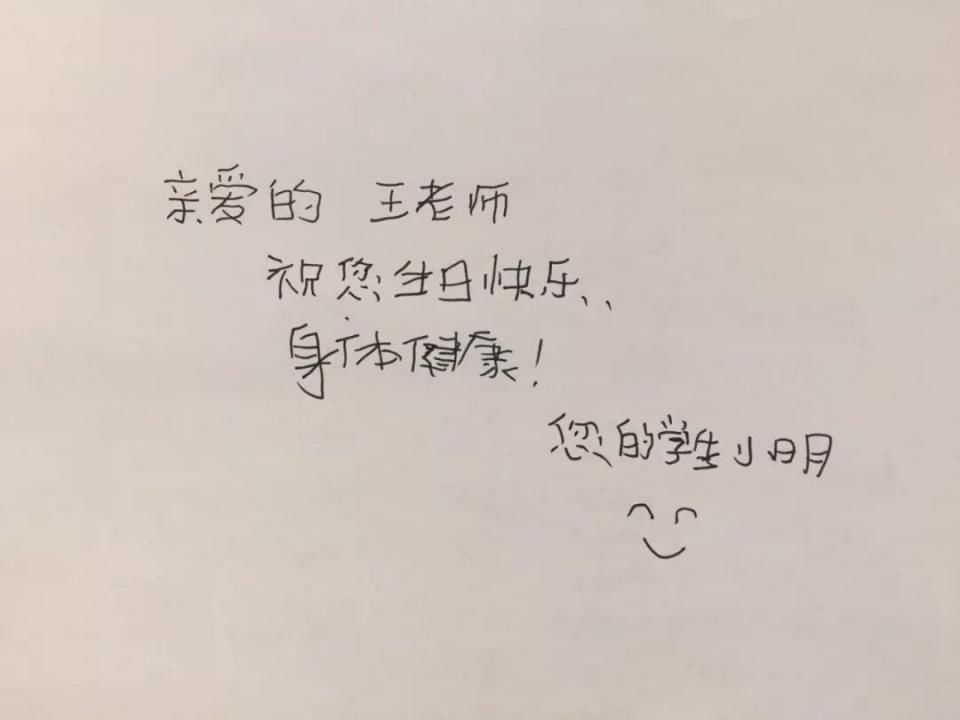 亲爱的 王老师
祝您生日快乐、、
身体健康!
您的学生小明